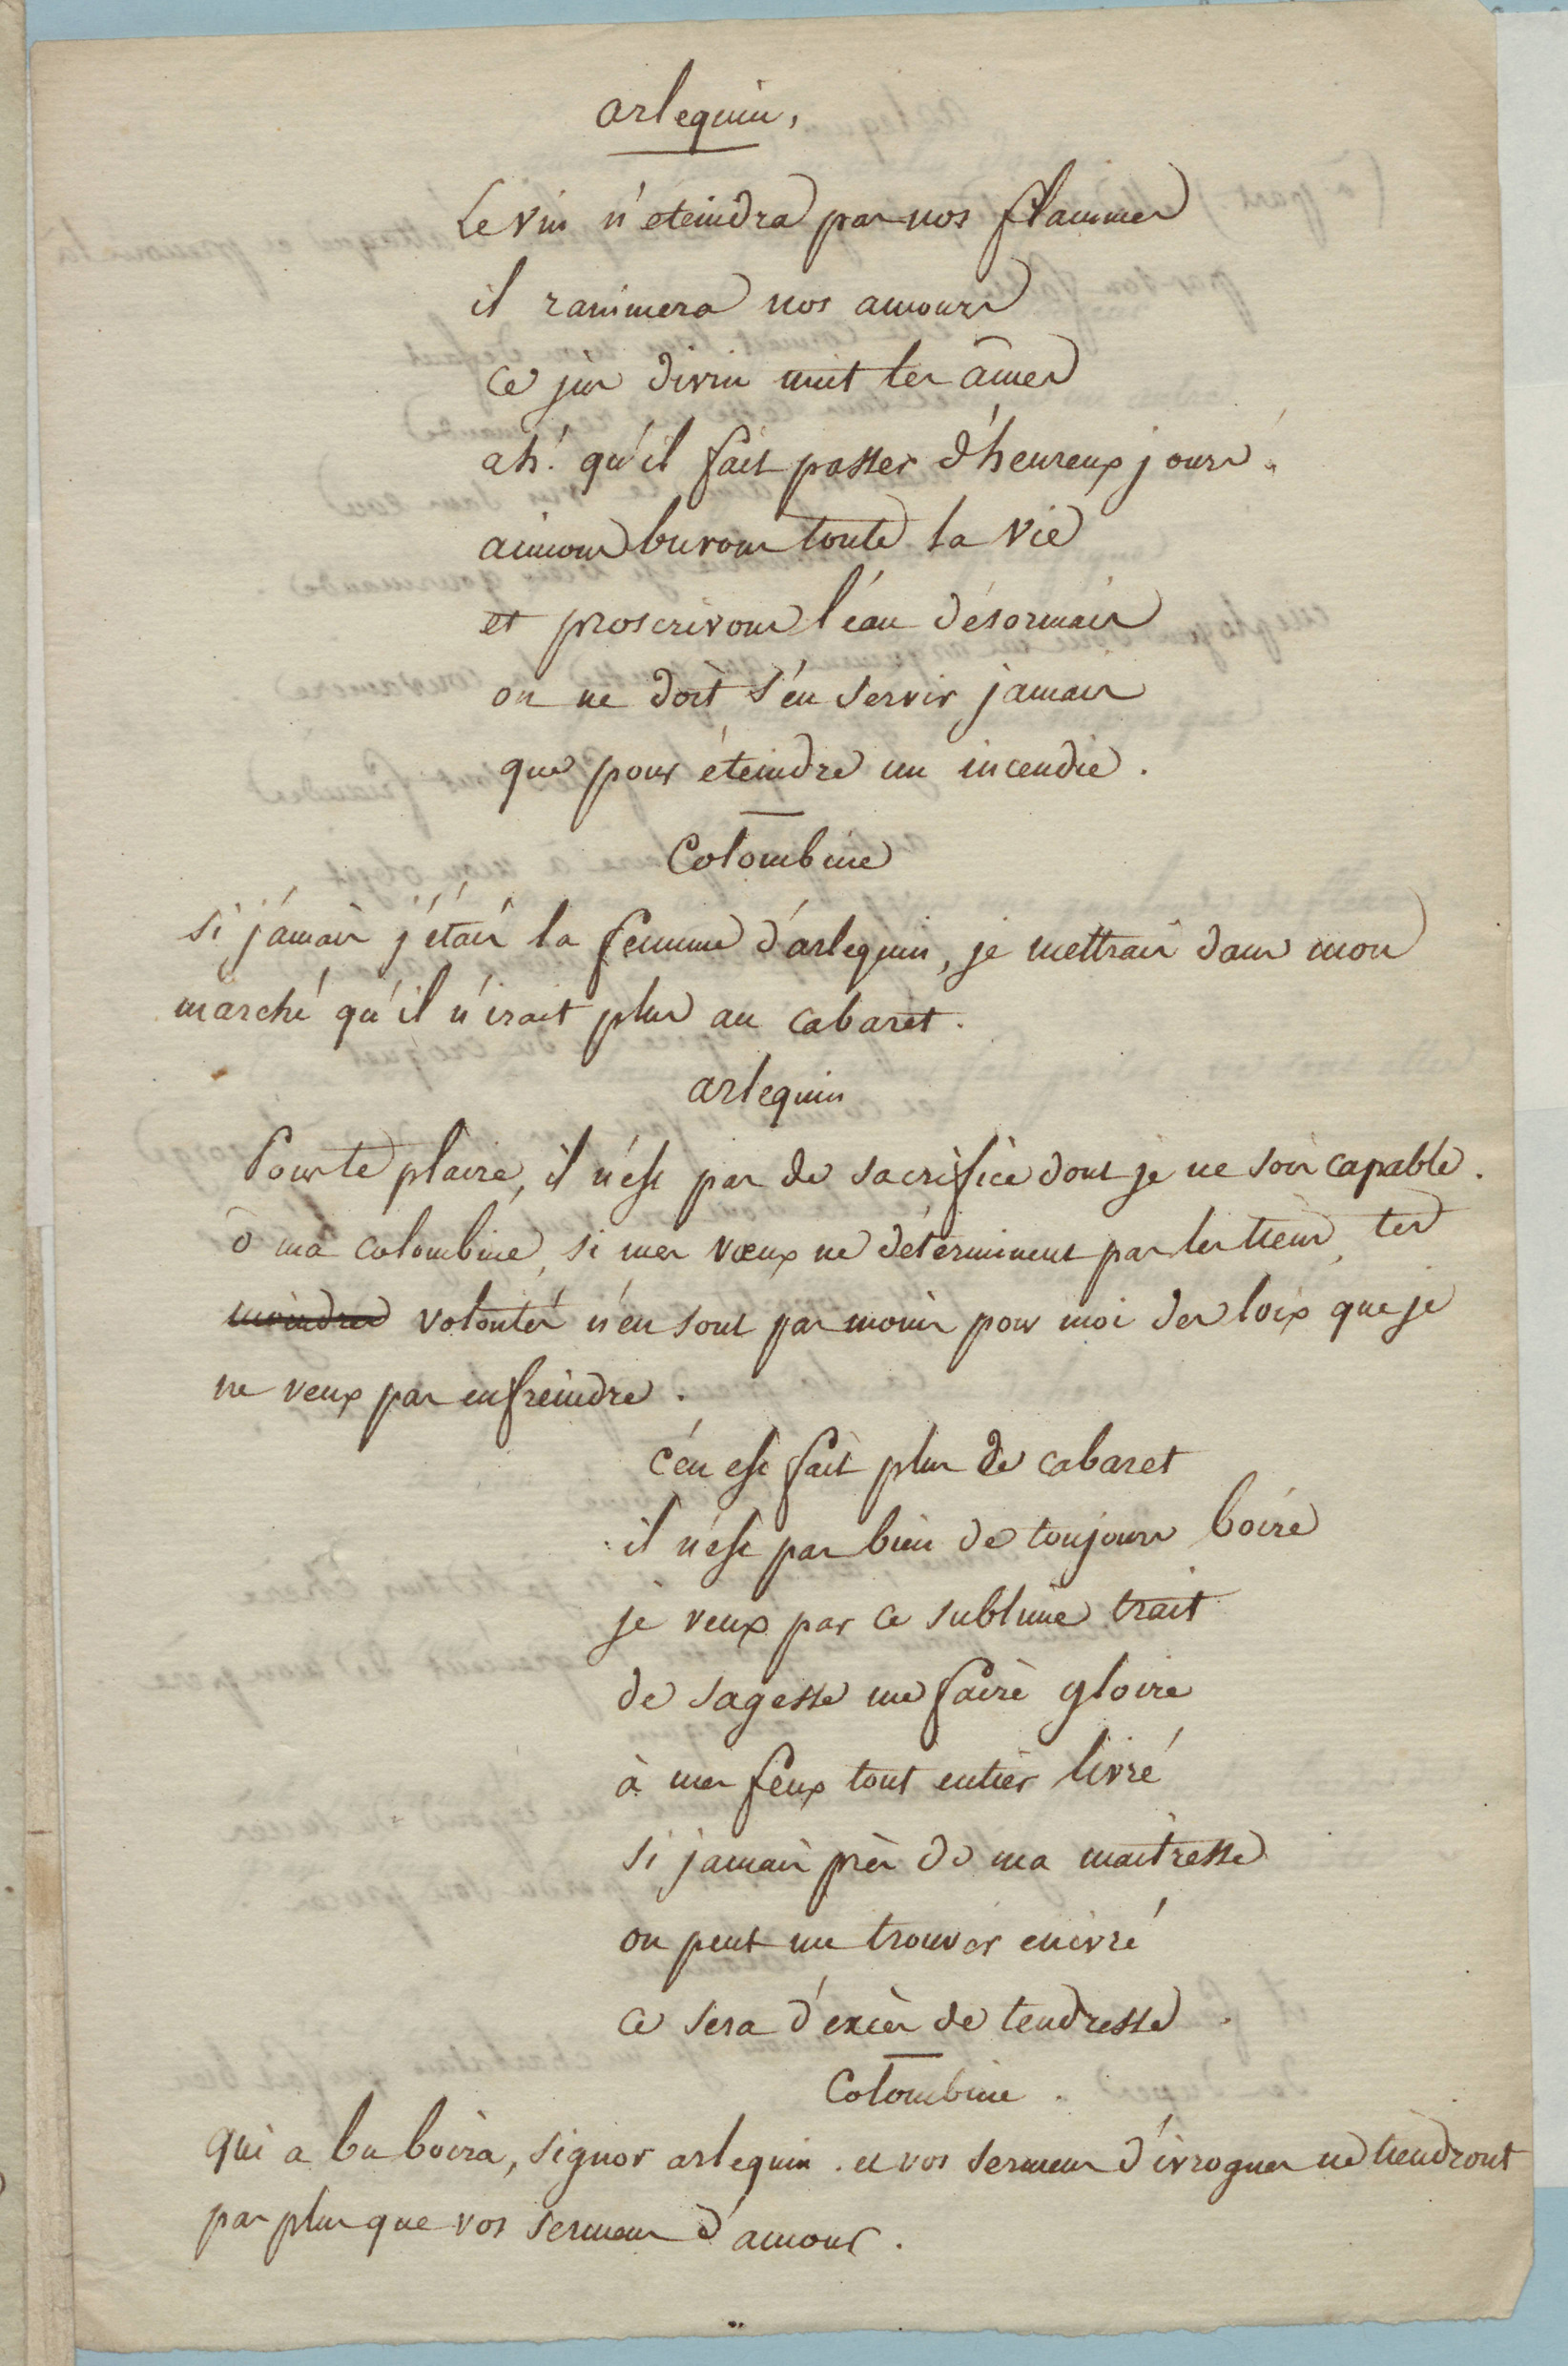 arlequin,
Le vin n'eteindra pas nos flammes
il ranimera nos amours
ce jus divin unit les âmes
ah! qu'il fait passer d'heureux jours.
aimons buvons toute la vie
et proscrivons l'eau désormais
on ne doit s'en servir jamais
que pour éteindre un incendie.
Colombine
si jamais j'étais la femme d'arlequin, je mettrais dans mon
marché qu'il n'irait plus au cabaret.
arlequin
Pour te plaire, il n'est pas de sacrifice dont je ne sois capable.
ô ma colombine, si mes vœux ne déterminent pas les tiens, tes
moindres volontés n'en sont pas moins pour moi des loix que je
ne veux pas enfreindre.
c'en est fait plus de cabaret
il n'est pas bien de toujours boire
je veux par ce sublime trait
de sagesse me faire gloire
à mes feux tout entier livré
si jamais près de ma maitresse
on peut me trouver enivré
ce sera d'excès de tendresse.
Colombine.
qui a bu boira, signor arlequin. et vos sermens d'ivrognes ne tiendront
pas plus que vos sermens d'amour.